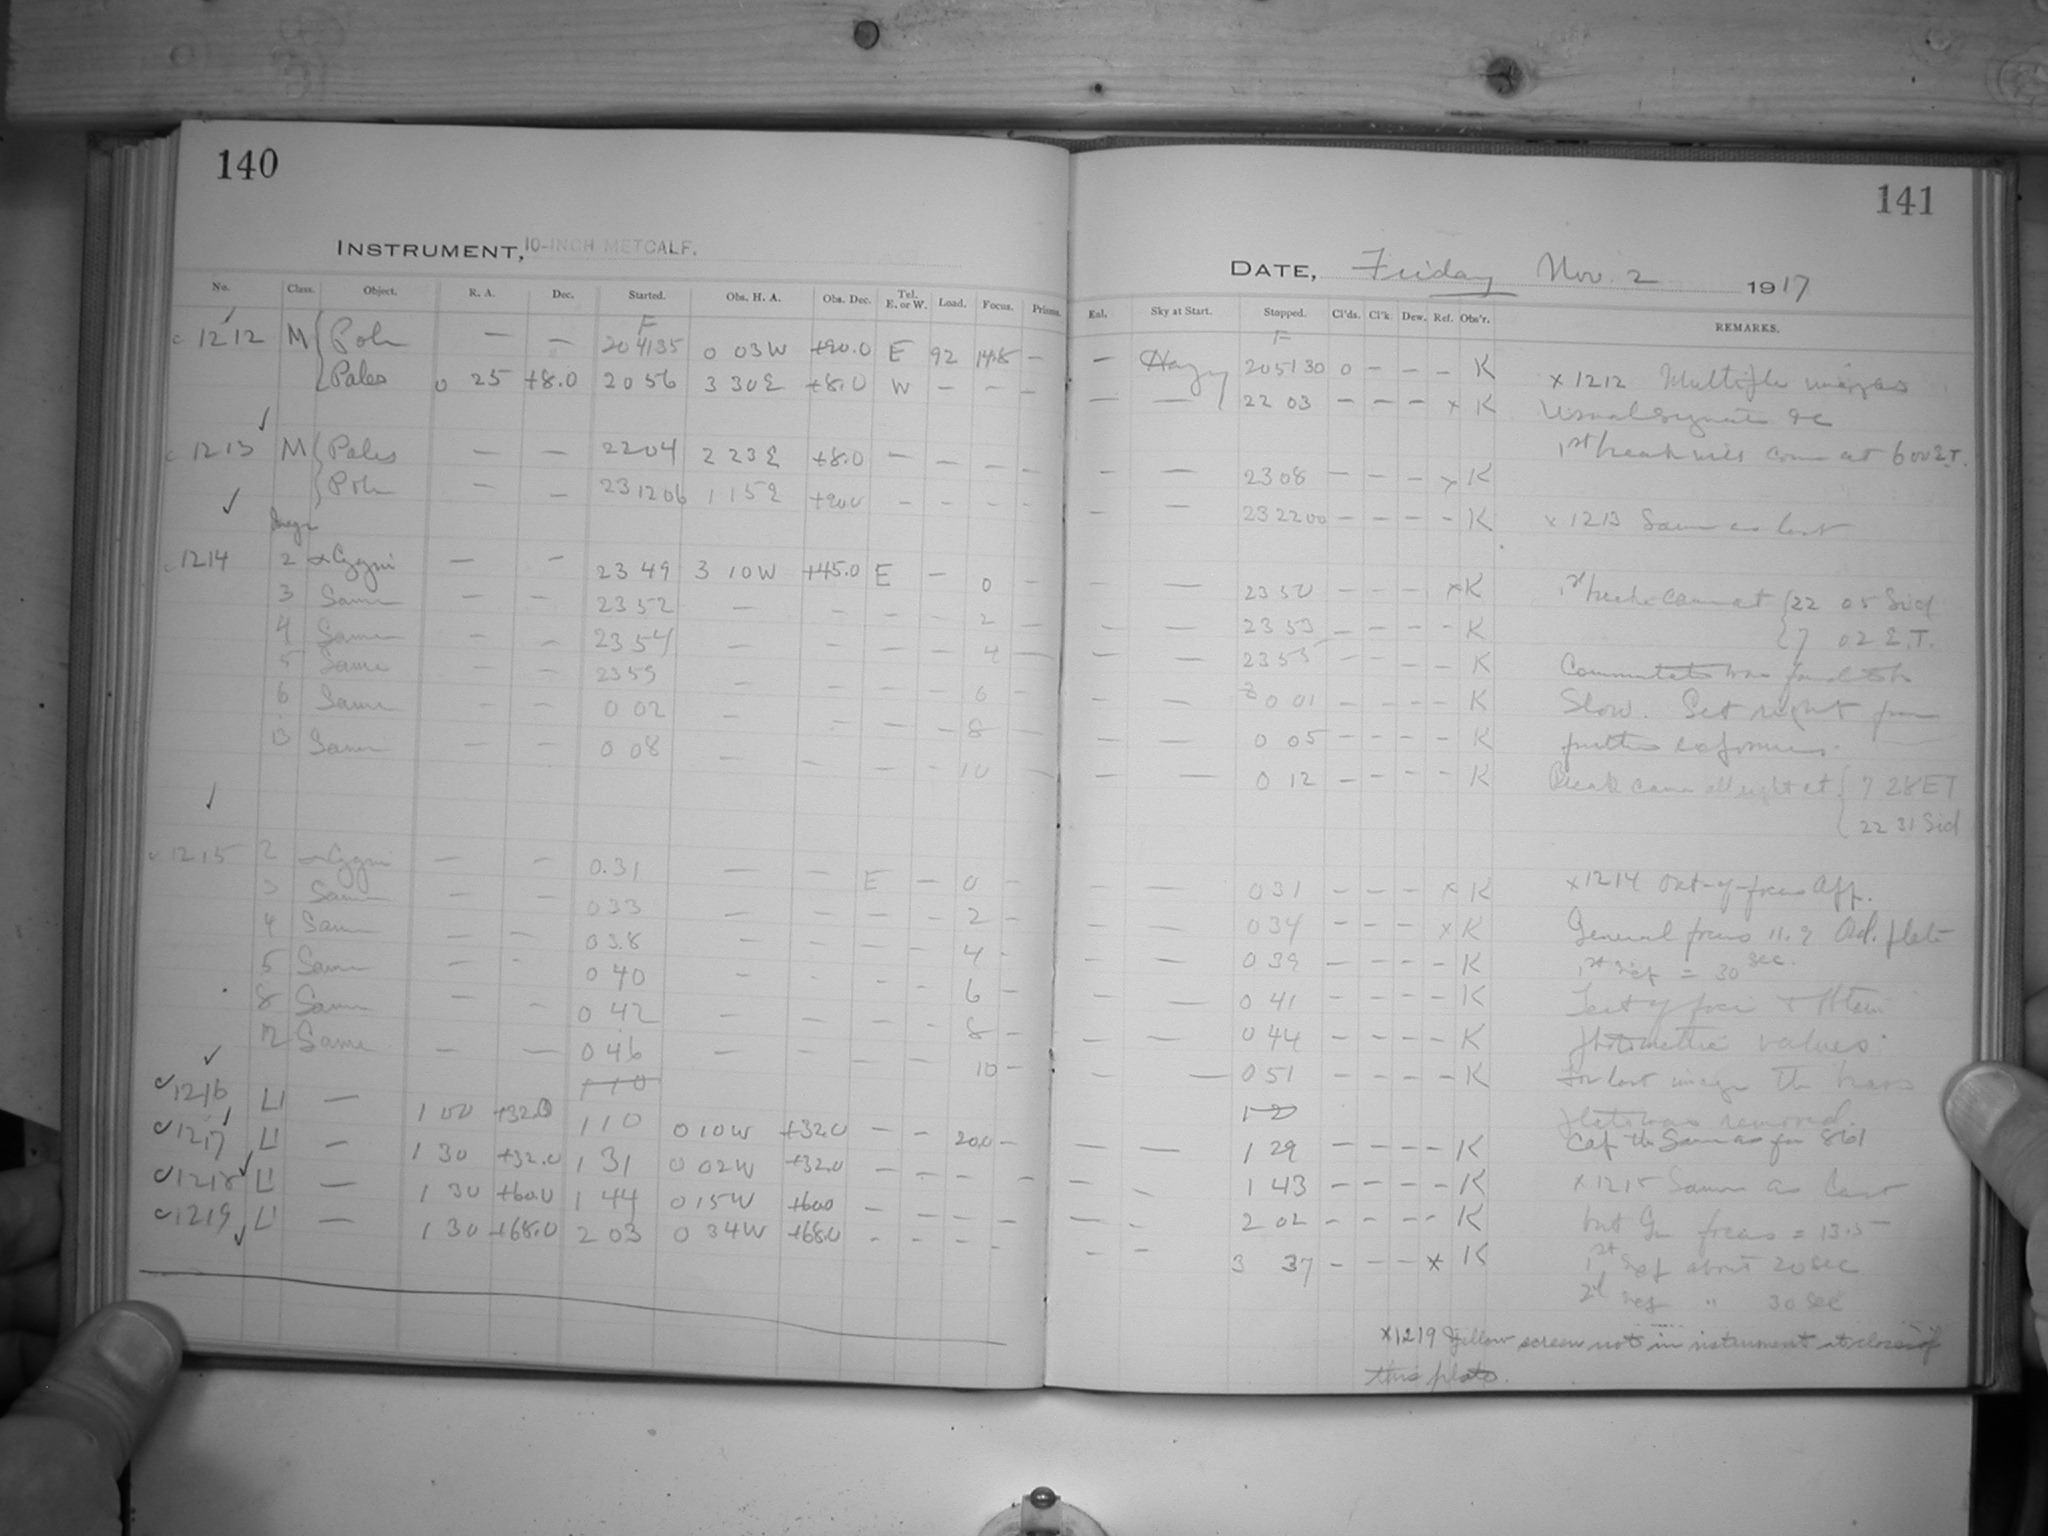 140
INSTRUMENT, 10-INCH METCALF.
No. Class. Object. R. A. Dec. Started. Obs. H. A. Obs. Dec. Tel. E. or W. Load. Focus. Prisms.
c 1212 M Pole — — F 20 41 35 0 03 W +90.0 E 92 14.8 —
Pales 0 25 +8.0 20 56 3 30 E +8.0 W — — —
c 1213 M Pales — — 22 04 2 23 E +8.0 — — — —
Pole — — 23 12 06 1 15 E +90.0 — — — —
Image
c 1214 2 α Cygni — — 23 49 3 10 W +45.0 E — 0 —
3 Same — — 23 52 — — — — 2 —
4 Same — — 23 54 — — — — 4 —
5 Same — — 23 59 — — — — 6 —
6 Same — — 0 02 — — — — 8 —
Same — — 0 08 — — — — 10 —
c 1215 2 α Cygni — — 0.31 — — E — 0 —
3 Same — — 0 33 — — — — 2 —
4 Same — — 0 38 — — — — 4 -
5 Same — - 0 40 - - - - 6 -
8 Same — - 0 42 — — — - 8 -
Same — — 0 46 — — — — 10 -
1 10
c 1216 L1 — 1 00 +32.0 1 10 0 10 W +32.0 — — 20.0 —
c 1217 L1 — 1 30 +32.0 1 31 0 02 W +32.0 — — — —
c 1218 L1 — 1 30 +60.0 1 44 0 15 W +60.0 — — — —
c 1219 L1 — 1 30 +68.0 2 03 0 34 W +68.0 - - — -
141
DATE, Friday Nov. 2 1917
Eal. Sky at Start. Stopped. Cl'ds. Cl'k. Dew. Ref. Obs'r. REMARKS.
— Hazy F 20 51 30 0 - - - K
— — 22 03 - - - x K
- — 23 08 - - - x K
- — 23 22 00 - - - - K
- — 23 50 - - - x K
- — 23 53 - - - - K
— — 23 55 - - - - K
- — 0 01 - - - - K
- — 0 05 - - - - K
— — 0 12 - - - - K
- — 0 31 - - - x K
- — 0 34 - - - x K
- — 0 39 - - - - K
- — 0 41 - - - - K
- — 0 44 - - - - K
- — 0 51 - - - - K
— — 1 29 - - - - K
- - 1 43 - - - - K
— - 2 02 - - - - K
- - 3 37 - - - x K
x 1212 Multiple images
usual &c
1st break will come at 6 00 E.T.
x 1213 Same as last
1st break came at 22 05 Sid
7 02 E.T.
Commutator was found to be
Slow. Set right from
further
Break came all right at 7 28 ET
22 31 Sid
x 1214 Out-of-focus App.
General focus 11.9 Ord. plate
1st ref = 30 sec.
Test of foci
photometric values.
For last image the brass
plate was removed.
Cap the Same as for 861
x 1215 Same as last
but Gen focus = 13.5
1st ref about 20 sec
2d ref " 30 sec
x 1219 Yellow screen not in instrument at close of
this plate.